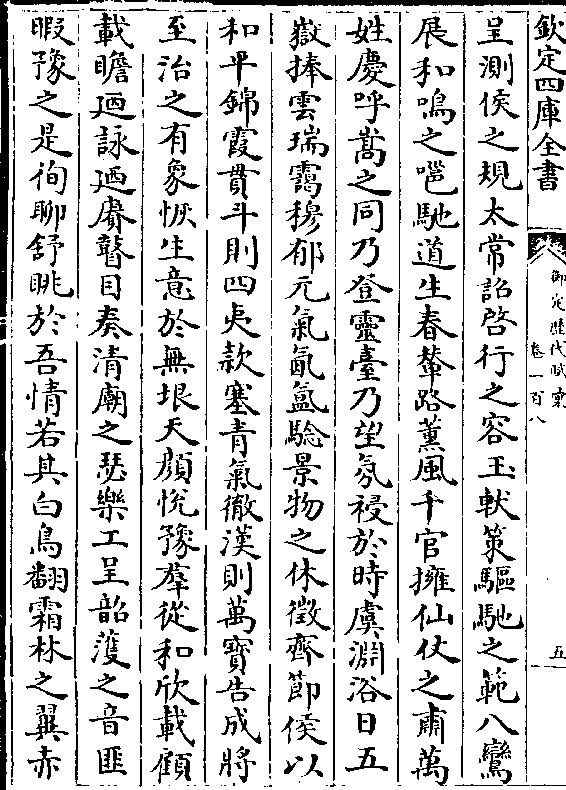 欽定四庫全書
御定歷代賦彙
卷一百八
五
呈測侯之規太常詔啓行之容玉軑策驅馳之範八鸞
展和鳴之嗈馳道生春輦路薰風千官擁仙仗之肅萬
姓慶呼嵩之同乃登靈臺乃望氛祲於時虞淵浴日五
嶽捧雲瑞靄穆郁元氣氤氳驗景物之休徵齊節侯以
和平錦霞貫斗則四夷款塞青氣徹漢則萬寶告成將
至治之有象恢生意於無垠天顔悅豫羣從和欣載顧
載瞻迺詠迺賡瞽目奏清廟之瑟樂工呈韶濩之音匪
暇豫之是徇聊舒眺於吾情若其白鳥翻霜林之翼赤